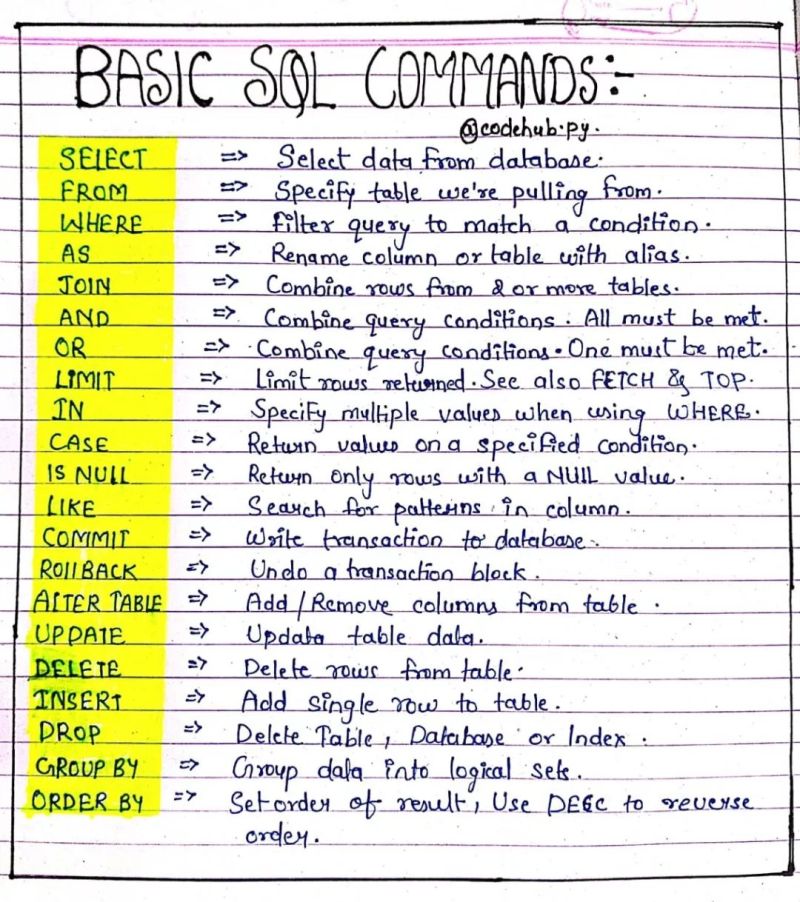 BASIC SQL COMMANDS:-
@codehub.py.
SELECT => Select data from database.
FROM => Specify table we're pulling from.
WHERE => filter query to match a condition.
AS => Rename column or table with alias.
JOIN => Combine rows from 2 or more tables.
AND => Combine query conditions. All must be met.
OR => Combine query conditions. One must be met.
LIMIT => Limit rows returned. See also FETCH & TOP.
IN => Specify multiple values when using WHERE.
CASE => Return values on a specified condition.
IS NULL => Return only rows with a NULL value.
LIKE => Search for patterns in column.
COMMIT => Write transaction to database.
ROLLBACK => Undo a transaction block.
ALTER TABLE => Add/Remove columns from table.
UPDATE => Update table data.
DELETE => Delete rows from table.
INSERT => Add single row to table.
DROP => Delete Table, Database or Index.
GROUP BY => Group data into logical sets.
ORDER BY => Set order of result, Use DESC to reverse
order.